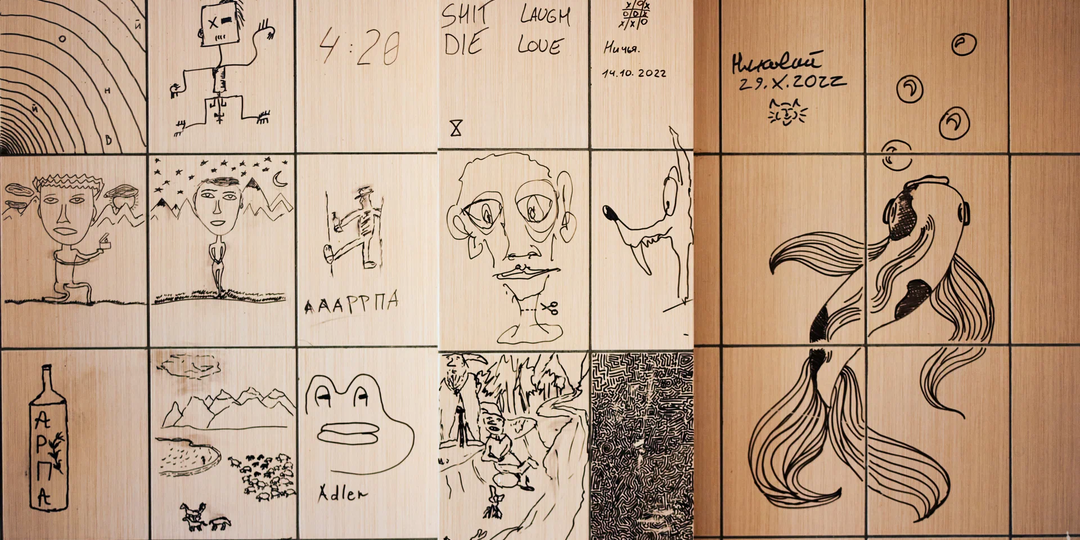 Й
О
Й
Н
В
4:20
SHIT LAUGH
DIE LOVE
X/O/X
O/O/X
X/X/O
Ничья.
14.10.2022
Николай
29.X.2022
АААРРПА
А
Р
П
А
Adler